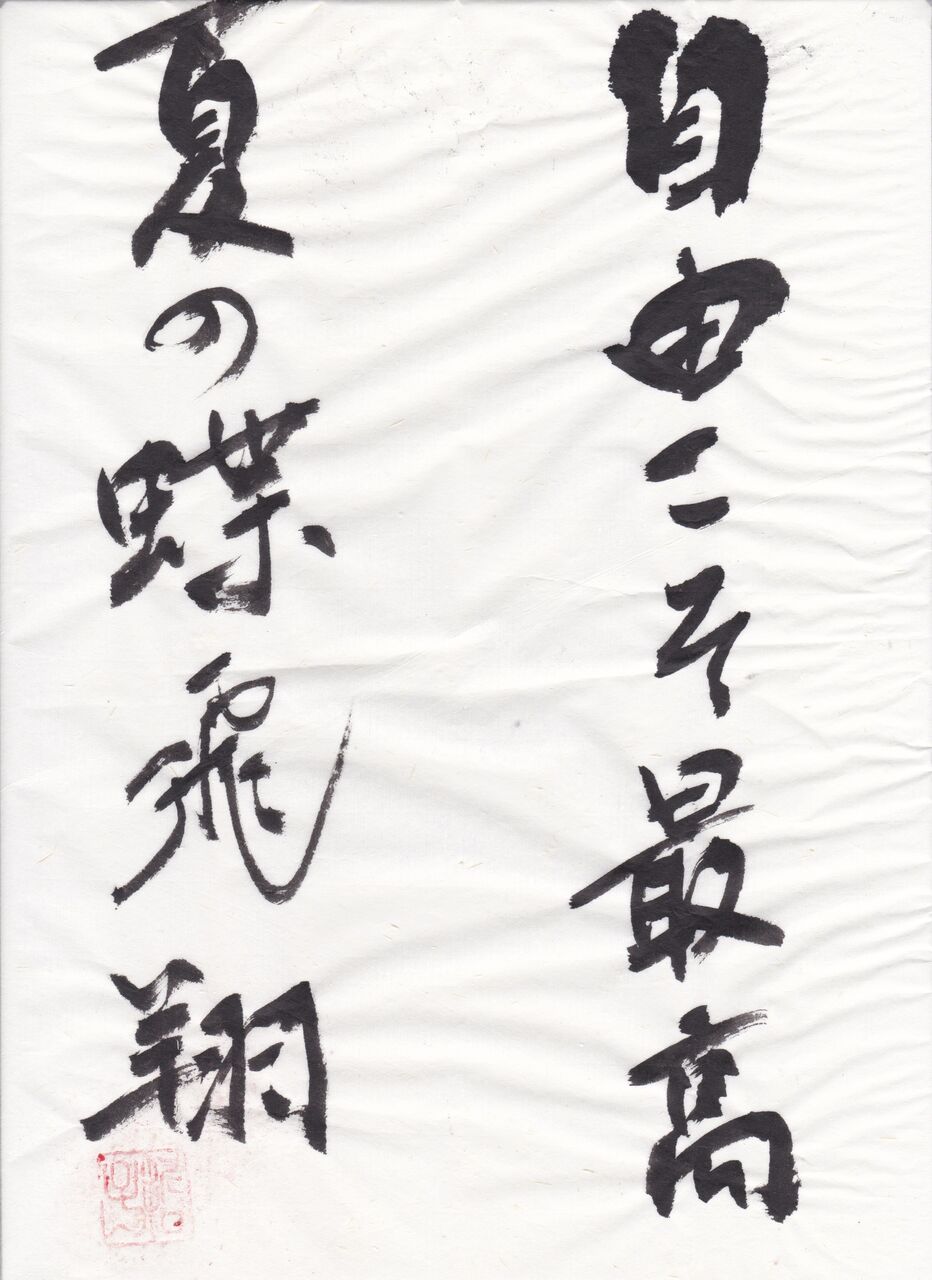 自由こそ最高
夏の蝶飛翔